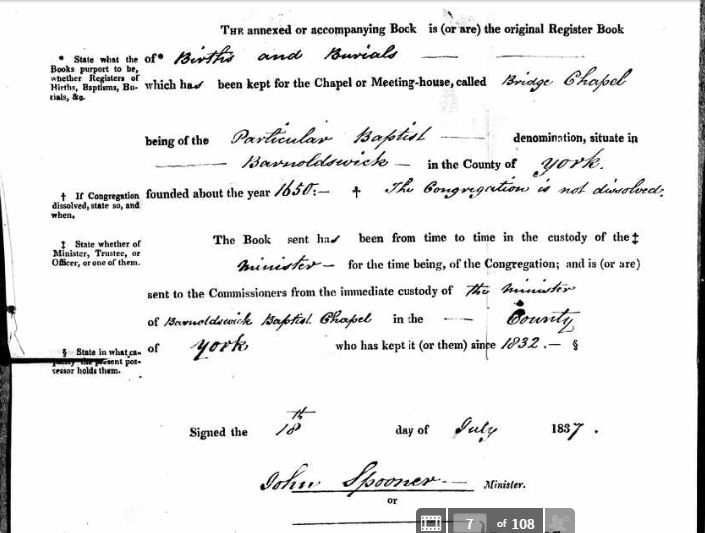 THE annexed or accompanying Book is (or are) the original Register Book
* State what the Books purport to be, whether Registers of Births, Baptisms, Burials, &c.
of* Births and Burials
which has been kept for the Chapel or Meeting-house, called Bridge Chapel
being of the Particular Baptist denomination, situate in
Barnoldswick — in the County of York.
† If Congregation dissolved, state so, and when.
founded about the year 1650:— † The Congregation is not dissolved.
‡ State whether of Minister, Trustee, or Officer, or one of them.
The Book sent has been from time to time in the custody of the‡
Minister — for the time being, of the Congregation; and is (or are)
sent to the Commissioners from the immediate custody of the Minister
of Barnoldswick Baptist Chapel in the — County
§ State in what capacity the present possessor holds them.
of York who has kept it (or them) since 1832.— §
Signed the 18th day of July 1837.
John Spooner — Minister.
or
7 of 108